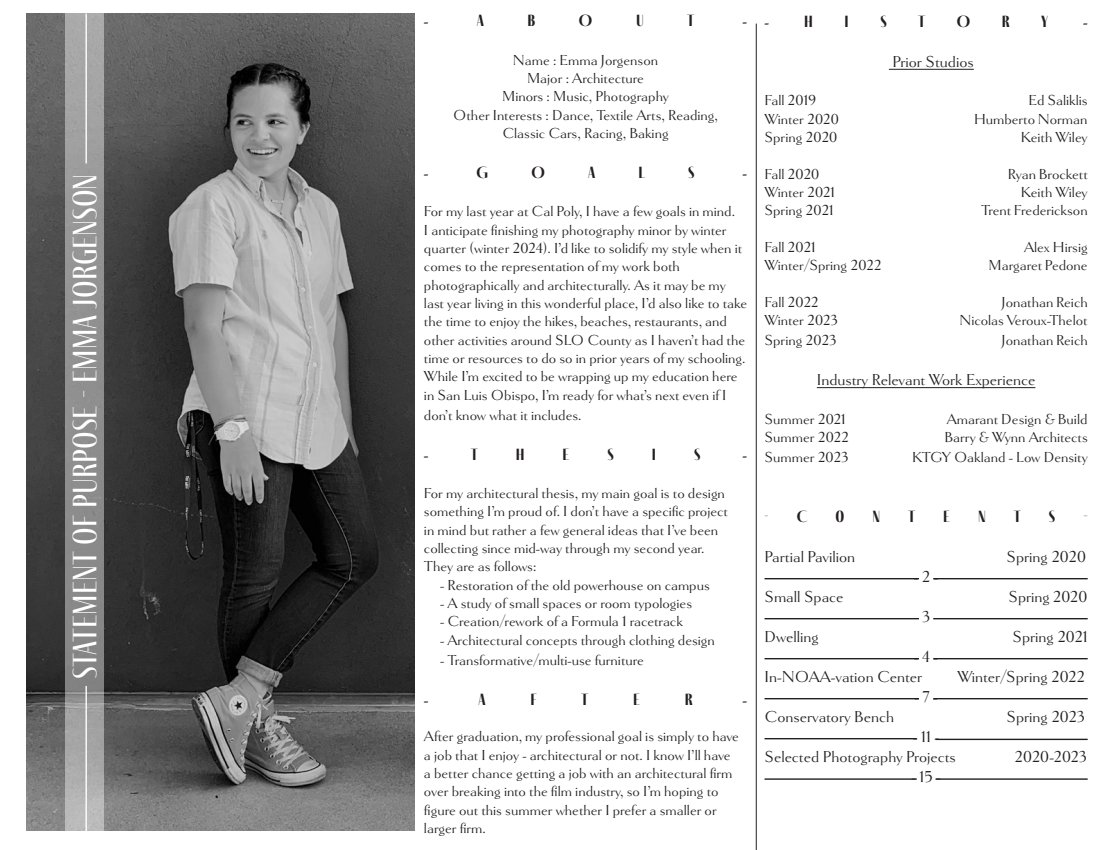 STATEMENT OF PURPOSE - EMMA JORGENSON
- A B O U T -
Name : Emma Jorgenson
Major : Architecture
Minors : Music, Photography
Other Interests : Dance, Textile Arts, Reading,
Classic Cars, Racing, Baking
- G O A L S -
For my last year at Cal Poly, I have a few goals in mind.
I anticipate finishing my photography minor by winter
quarter (winter 2024). I'd like to solidify my style when it
comes to the representation of my work both
photographically and architecturally. As it may be my
last year living in this wonderful place, I'd also like to take
the time to enjoy the hikes, beaches, restaurants, and
other activities around SLO County as I haven't had the
time or resources to do so in prior years of my schooling.
While I'm excited to be wrapping up my education here
in San Luis Obispo, I'm ready for what's next even if I
don't know what it includes.
- T H E S I S -
For my architectural thesis, my main goal is to design
something I'm proud of. I don't have a specific project
in mind but rather a few general ideas that I've been
collecting since mid-way through my second year.
They are as follows:
- Restoration of the old powerhouse on campus
- A study of small spaces or room typologies
- Creation/rework of a Formula 1 racetrack
- Architectural concepts through clothing design
- Transformative/multi-use furniture
- A F T E R -
After graduation, my professional goal is simply to have
a job that I enjoy - architectural or not. I know I'll have
a better chance getting a job with an architectural firm
over breaking into the film industry, so I'm hoping to
figure out this summer whether I prefer a smaller or
larger firm.
- H I S T O R Y -
Prior Studios
Fall 2019 Ed Saliklis
Winter 2020 Humberto Norman
Spring 2020 Keith Wiley
Fall 2020 Ryan Brockett
Winter 2021 Keith Wiley
Spring 2021 Trent Frederickson
Fall 2021 Alex Hirsig
Winter/Spring 2022 Margaret Pedone
Fall 2022 Jonathan Reich
Winter 2023 Nicolas Veroux-Thelot
Spring 2023 Jonathan Reich
Industry Relevant Work Experience
Summer 2021 Amarant Design & Build
Summer 2022 Barry & Wynn Architects
Summer 2023 KTGY Oakland - Low Density
- C O N T E N T S -
Partial Pavilion Spring 2020
2
Small Space Spring 2020
3
Dwelling Spring 2021
4
In-NOAA-vation Center Winter/Spring 2022
7
Conservatory Bench Spring 2023
11
Selected Photography Projects 2020-2023
15